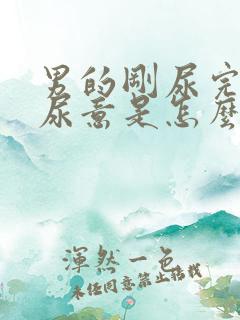 男的剛尿完
尿意是怎麼
渾然一色
未经同意禁止搭载